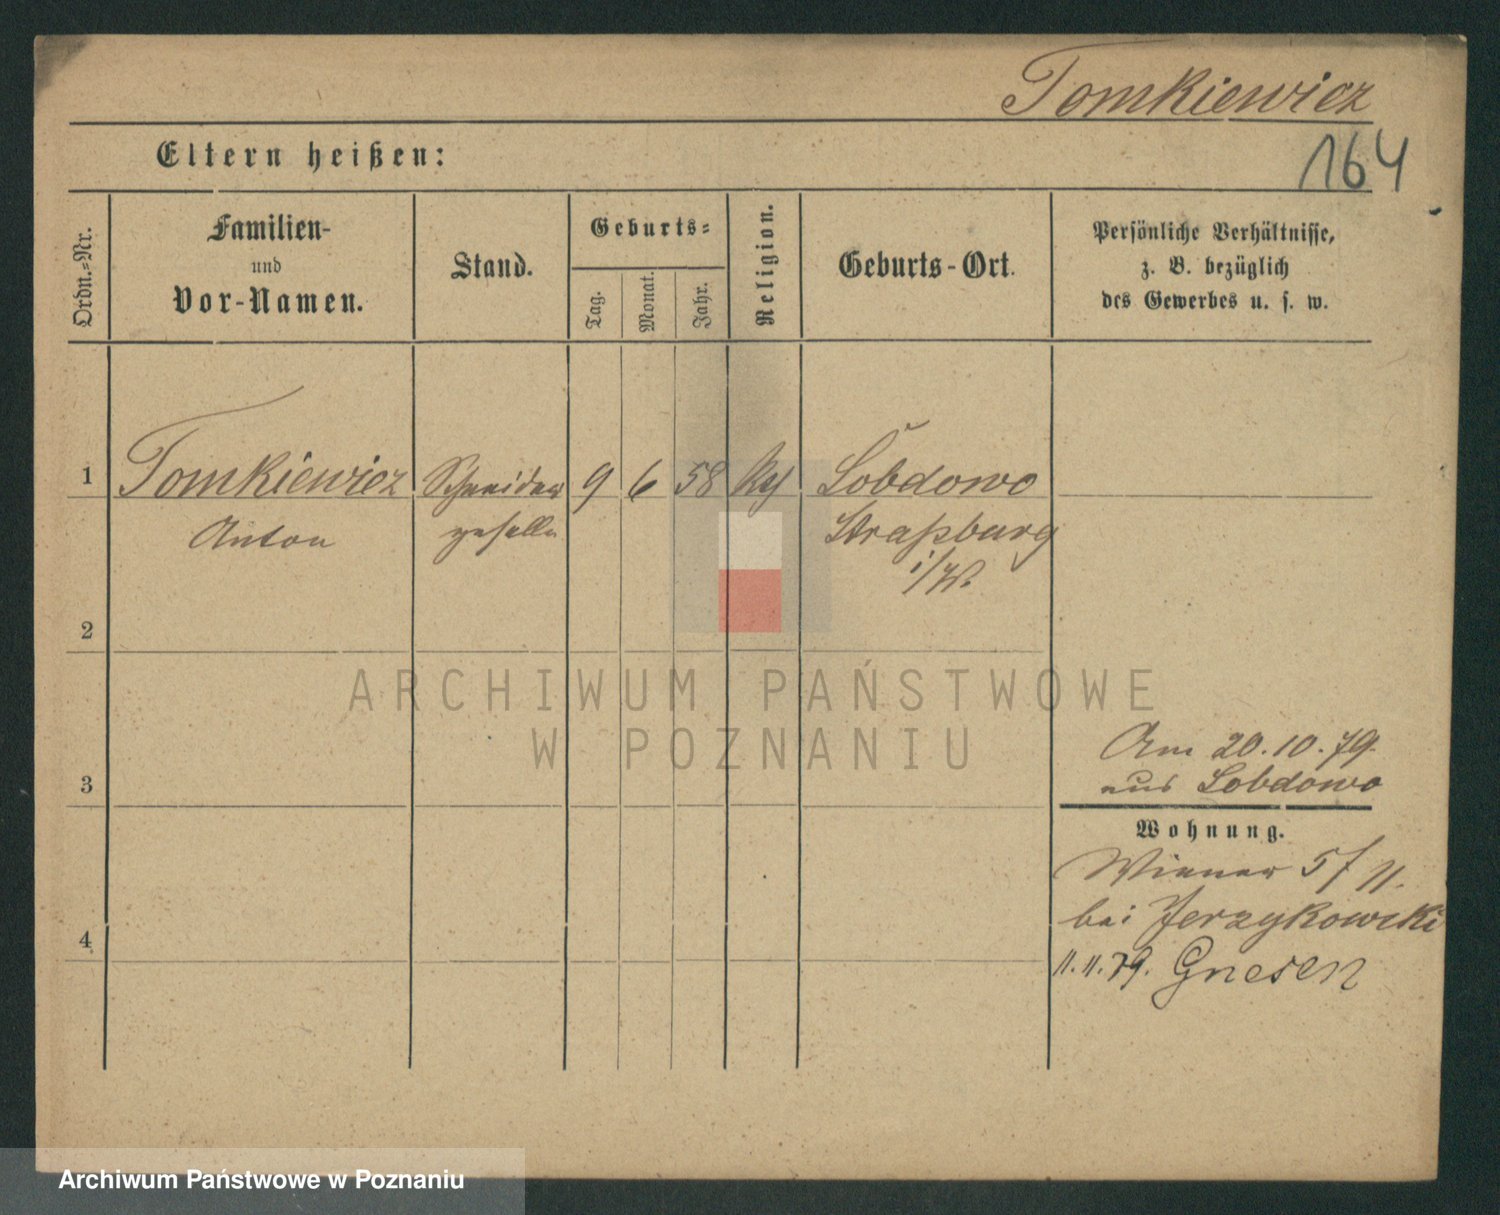 Tomkiewicz
164
Eltern heißen:
Ordn.=Nr.
Familien-
und
Vor-Namen.
Stand.
Geburts=
Tag.
Monat.
Jahr.
Religion.
Geburts-Ort.
Persönliche Verhältnisse,
z. B. bezüglich
des Gewerbes u. s. w.
1 Tomkiewicz Schneider 9 6 58 Lobdowo
Anton geselle Straßburg
i/W.
2
3
Am 20.10.79.
aus Lobdowo
Wohnung.
Wiener 5/11.
bei Jerzykowski
4
11.11.79. Gnesen
ARCHIWUM PAŃSTWOWE
W POZNANIU
Archiwum Państwowe w Poznaniu